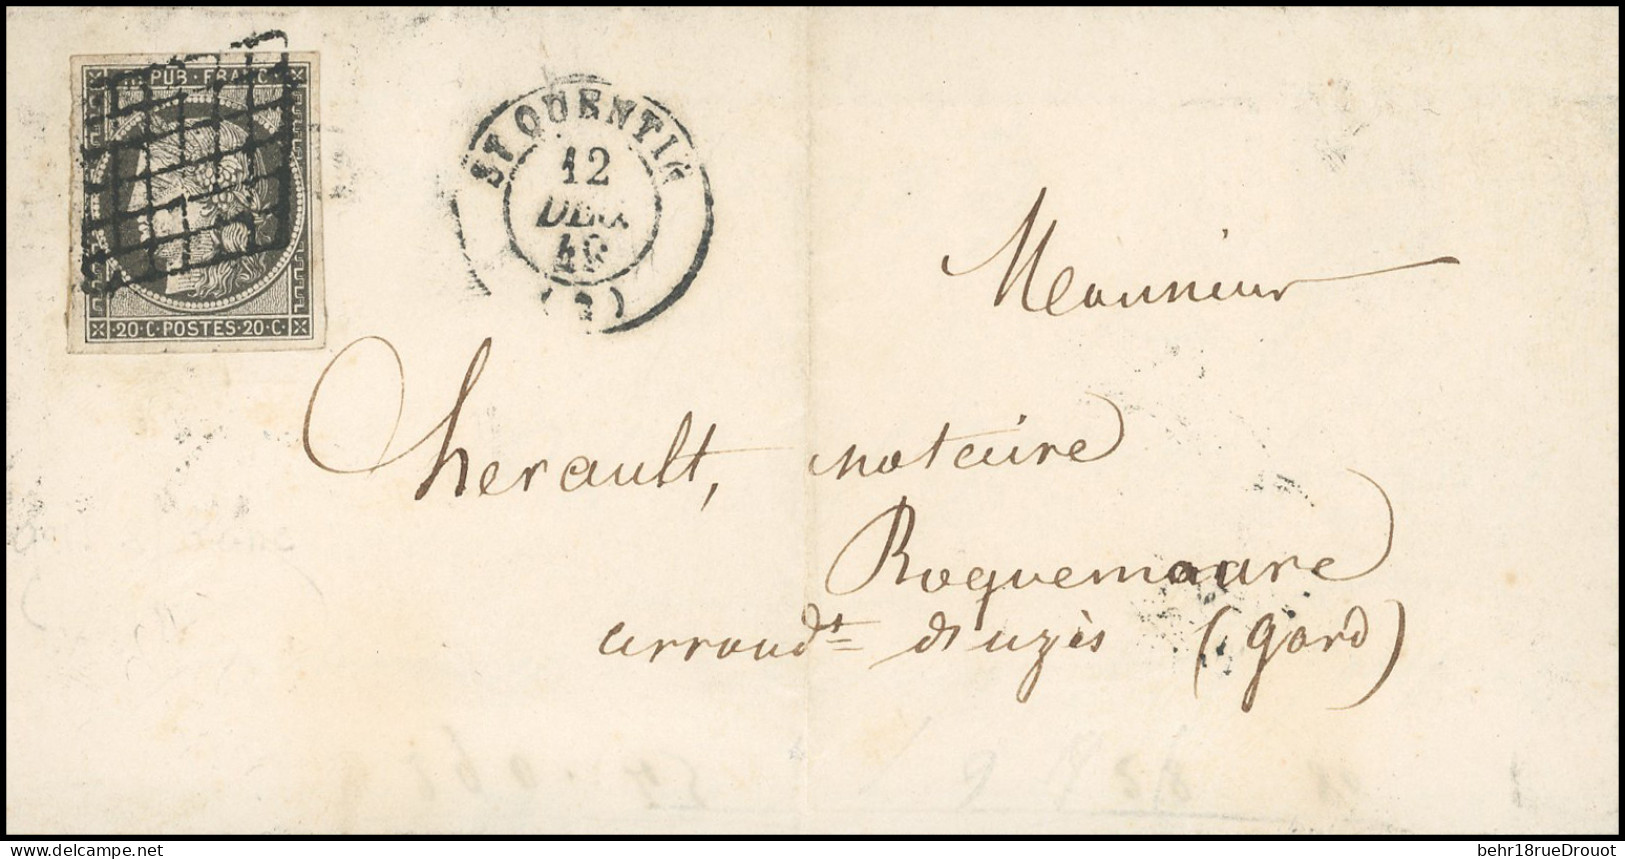 REPUB · FRANC ·
20 · C · POSTES · 20 · C ·
ST QUENTIN
12
DEC.
49
(2)
Monsieur
herault, notaire
Roquemaure
arrond^t d'uzès (Gard)
delcampe.net
behr18rueDrouot